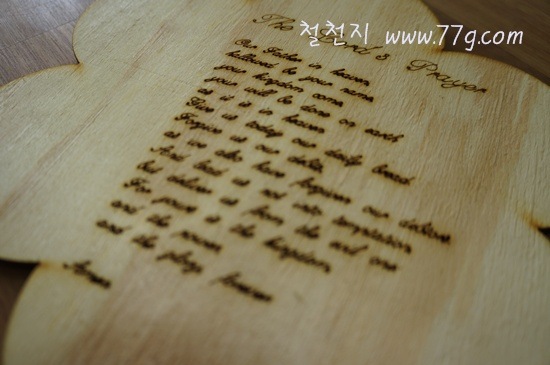 철천지 www.77g.com
The Lord's Prayer
Our Father in heaven
hallowed be your name
your kingdom come
your will be done on earth
as it is in heaven
Give us today our daily bread
Forgive us our debts
as we also have forgiven our debtors
And lead us not into temptation
But deliver us from the evil one
For yours is the kingdom
and the power
and the glory forever
Amen